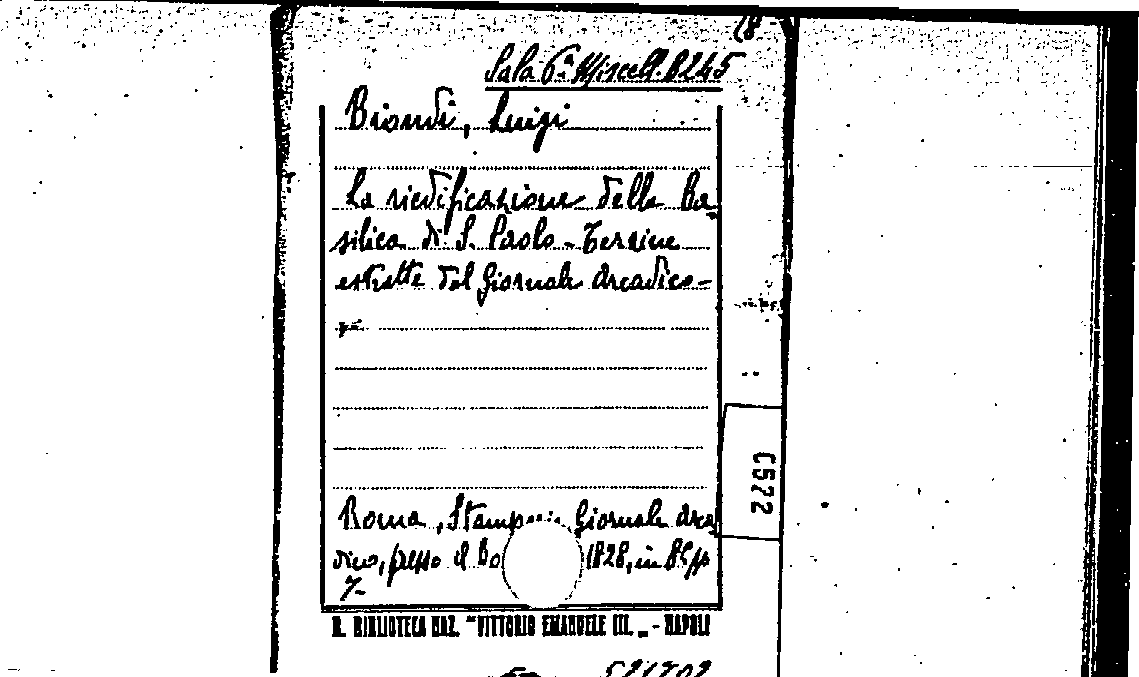 Sala 6ª Miscell. B245
Biondi, Luigi
La riedificazione della Ba-
silica di S. Paolo - Terzine
estratte dal Giornale Arcadico -
Roma, Stamperia Giornale Arca
dico, presso il Bo 1828, in 8º, pp
7-
R. BIBLIOTECA NAZ. "VITTORIO EMANUELE III. „ - NAPOLI
C522